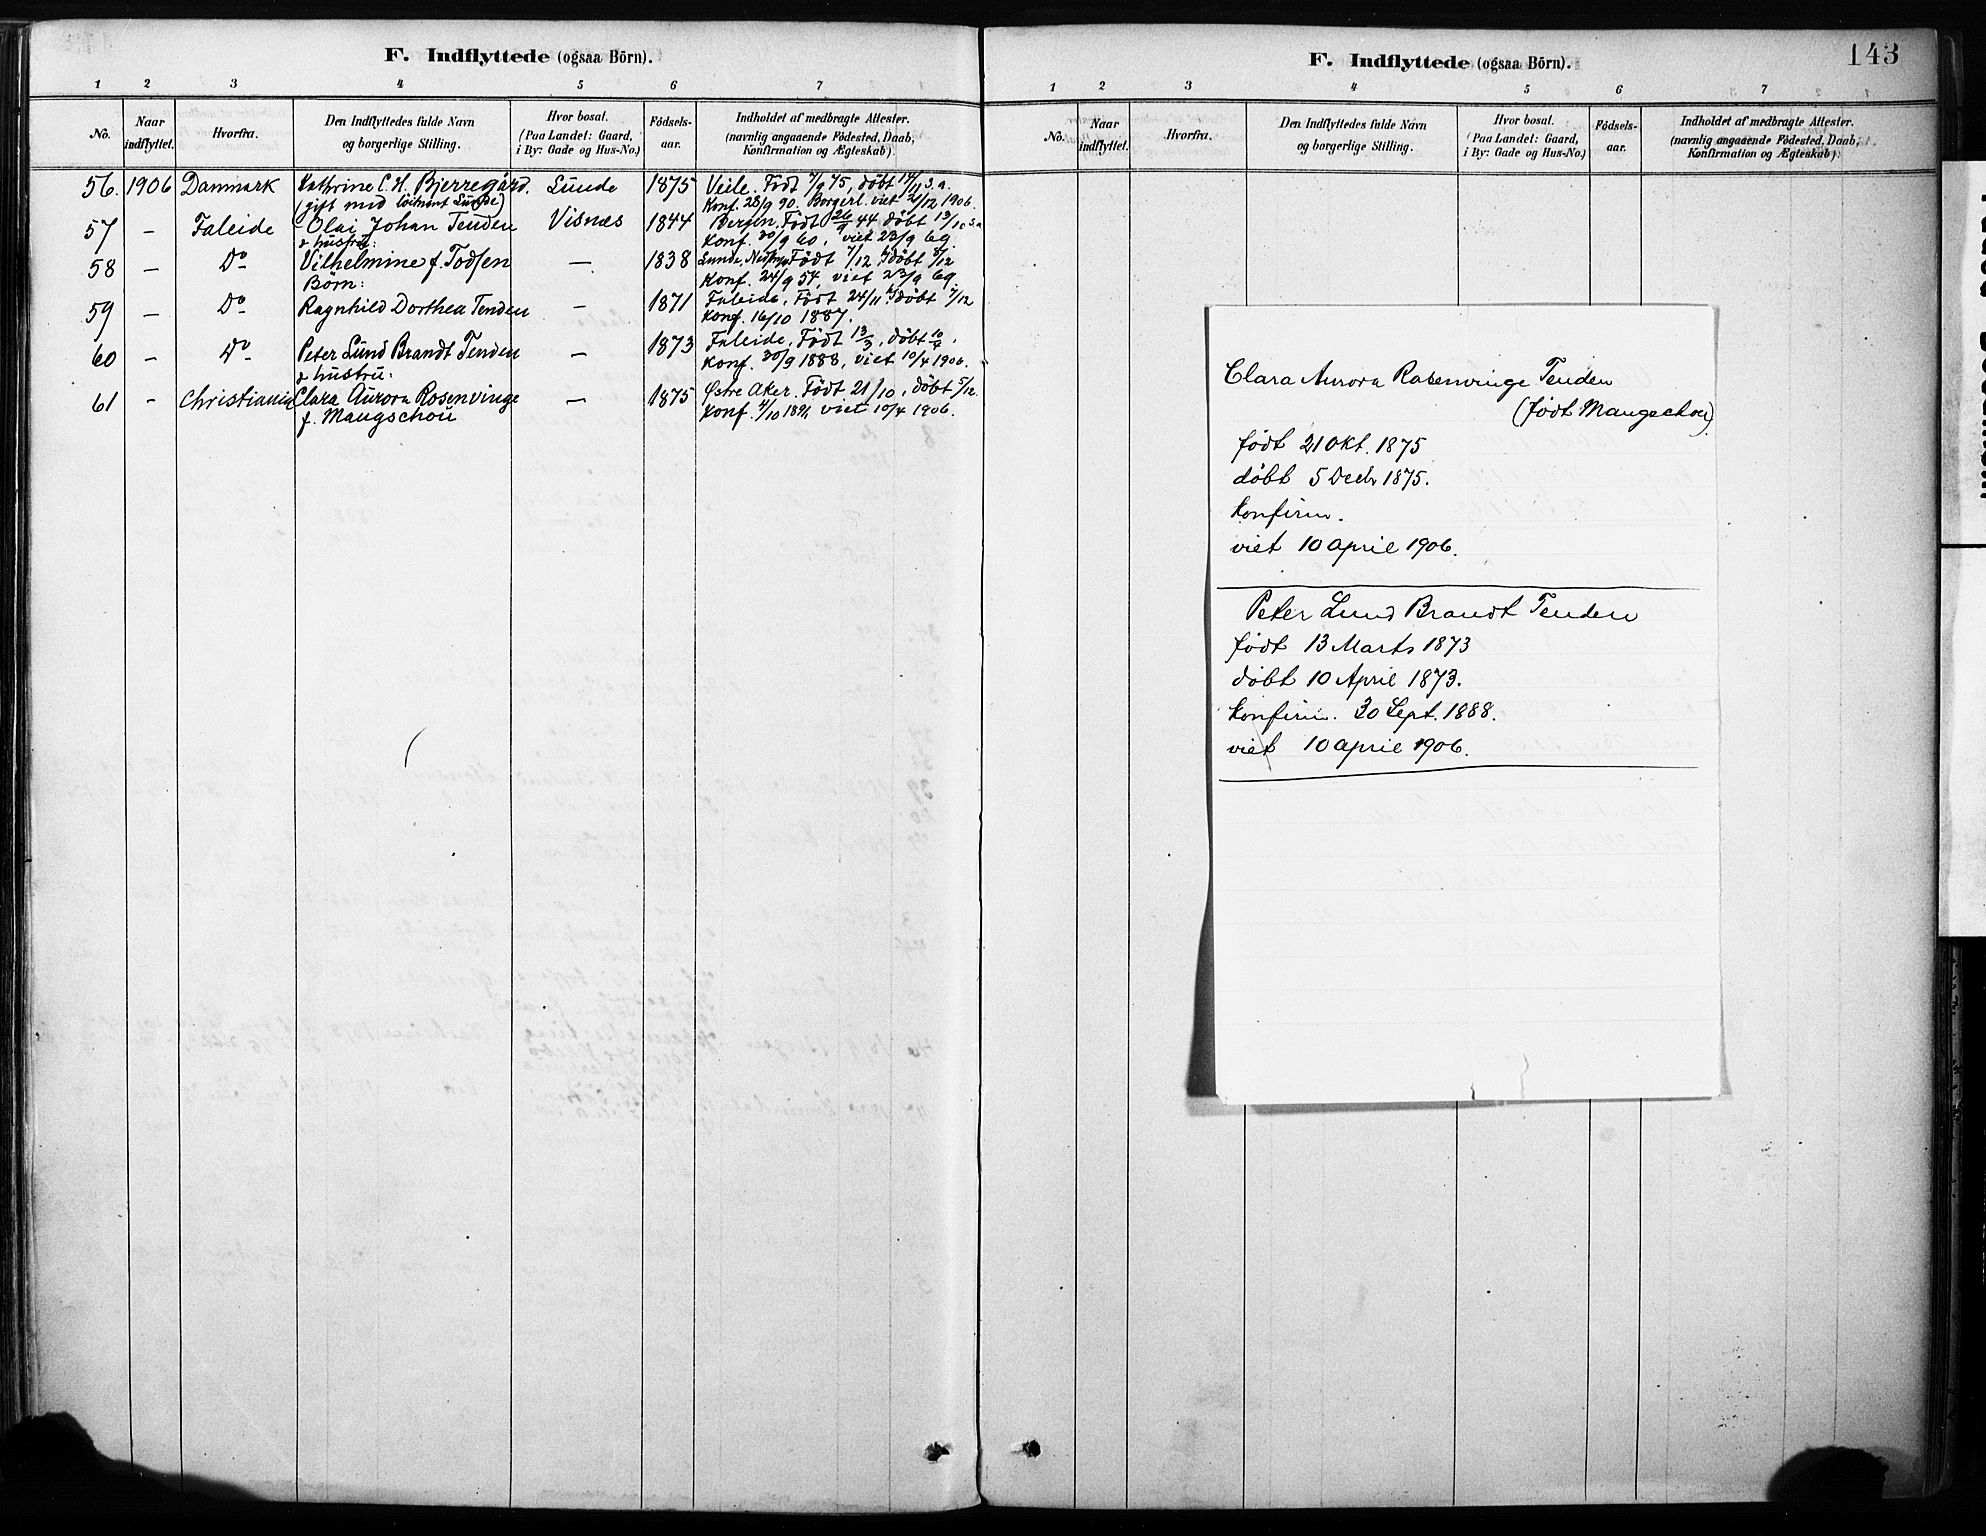 F. Indflyttede (ogsaa Börn).
1 2 3 4 5 6 7
No. Naar indflyttet. Hvorfra. Den Indflyttedes fulde Navn og borgerlige Stilling. Hvor bosat. (Paa Landet: Gaard, i By: Gade og Hus-No.) Fødsels-aar. Indholdet af medbragte Attester. (navnlig angaaende Fødested, Daab, Konfirmation og Ægteskab).
56. 1906 Danmark Kathrine C. H. Bjerregård. Lunde 1875 Veile. Født 7/9 75, döbt 14/11 s.a.
(gift med löitnant Lunde) Konf. 28/9 90. Borgerl. viet 21/12 1906.
57 – Faleide Olai Johan Tenden Visnæs 1844 Bergen. Født 26/9 44 döbt 13/10 s.a
& hustru: Konf. 30/9 60, viet 23/9 69.
58 – Do Vilhelmine f. Todsen — 1838 Lunde, Født 7/12 döbt 8/12
Börn: Konf. 24/9 54, viet 23/9 69.
59 – Do Ragnhild Dorthea Tenden — 1871 Faleide, Født 24/11 döbt 7/12
Konf. 16/10 1887.
60 – Do Peter Lund Brandt Tenden — 1873 Faleide. Født 13/3, döbt 10/4.
& hustru: Konf. 30/9 1888, viet 10/4 1906.
61 – Christiania Clara Aurora Rosenvinge — 1875 Østre Aker. Født 21/10, döbt 5/12.
f. Maugschou Konf. 4/10 1891, viet 10/4 1906.
F. Indflyttede (ogsaa Börn).
143
1 2 3 4 5 6 7
No. Naar indflyttet. Hvorfra. Den Indflyttedes fulde Navn og borgerlige Stilling. Hvor bosat. (Paa Landet: Gaard, i By: Gade og Hus-No.) Fødsels-aar. Indholdet af medbragte Attester. (navnlig angaaende Fødested, Daab, Konfirmation og Ægteskab).
Clara Aurora Rosenvinge Tenden
(født Maugschou)
født 21 Okt. 1875
döbt 5 Decbr 1875.
Konfirm.
viet 10 april 1906.
Peter Lund Brandt Tenden
født 13 Marts 1873
döbt 10 April 1873.
Konfirm. 30 Sept. 1888.
viet 10 april 1906.